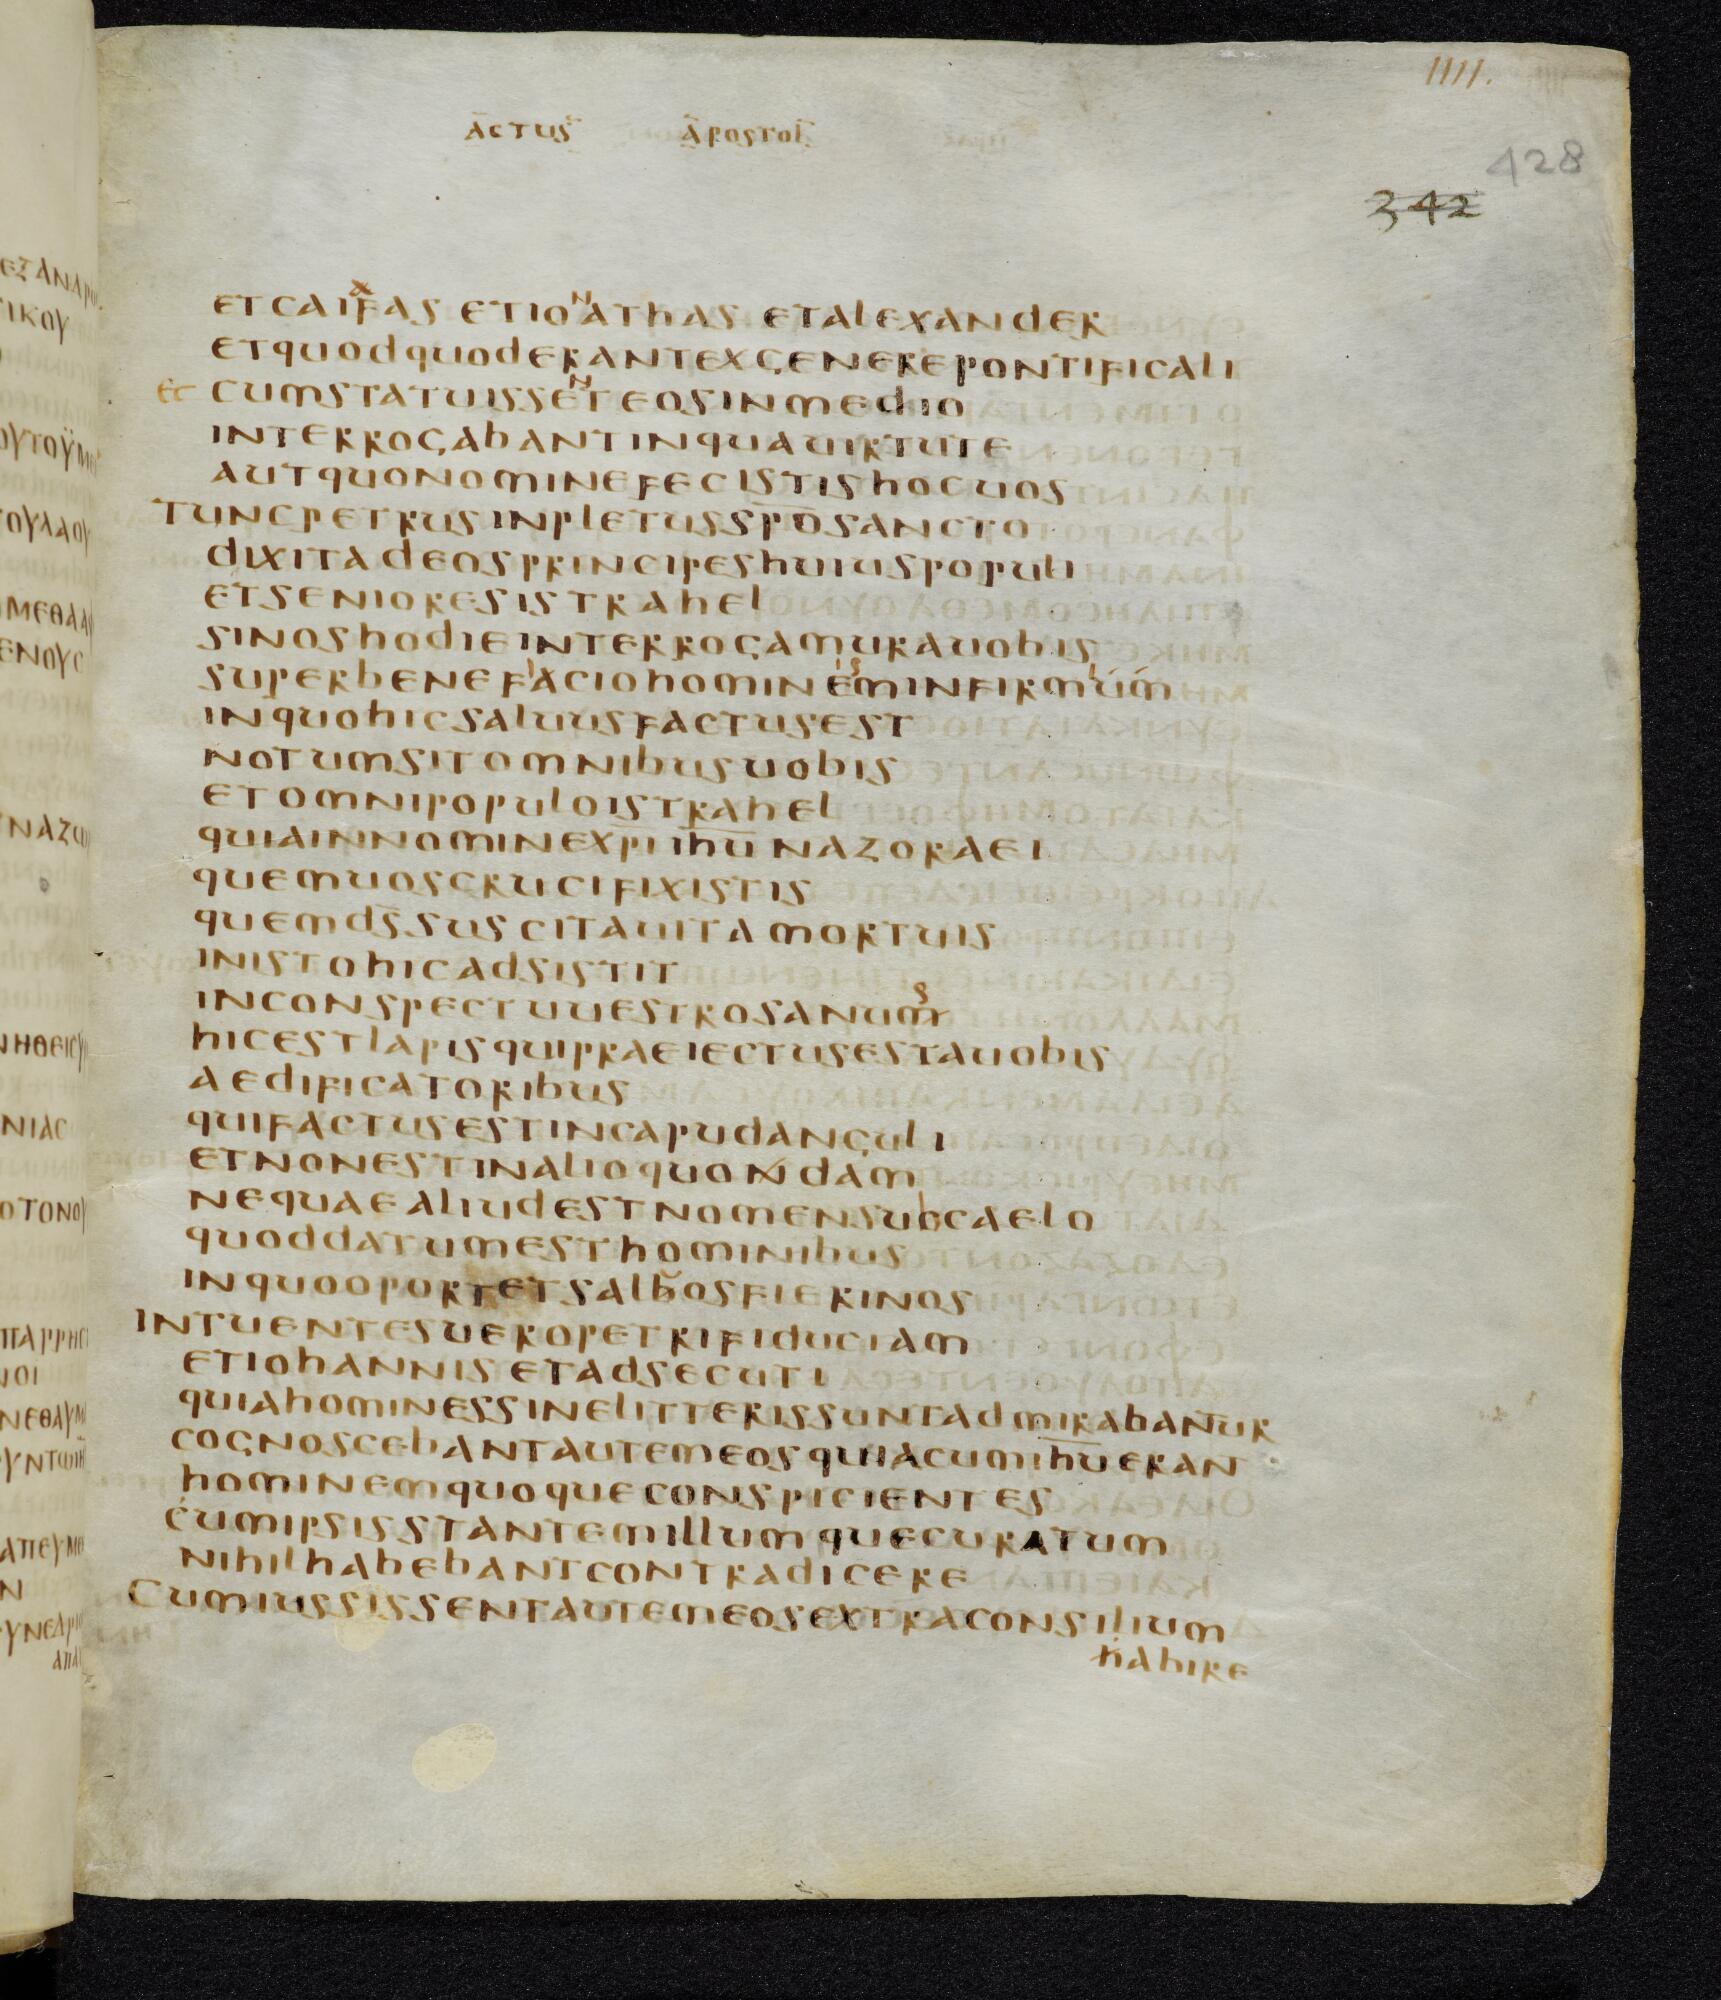 IIII.
ACTUS APOSTOL
428
342
ET CAIFAS ET IONATHAS ET ALEXANDER
ETQUODQUODERANTEXGENEREPONTIFICALI
ET CUMSTATUISSENTEOSINMEDIO
INTERROGABANTINQUAUIRTUTE
AUTQUONOMINEFECISTISHOCUOS
TUNCPETRUSINPLETUSSPOSANCTO
DIXITADEOSPRINCIPESHUIUSPOPULI
ETSENIORESISTRAHEL
SINOSHODIEINTERROGAMURAUOBIS
SUPERBENEFACIOHOMINEMINFIRMUM
INQUOHICSALUUSFACTUSEST
NOTUMSITOMNIBUSUOBIS
ETOMNIPOPULOISTRAHEL
QUIAINNOMINEXPIIHUNAZORAEI
QUEMUOSCRUCIFIXISTIS
QUEMDSSUSCITAUITAMORTUIS
INISTOHICADSISTIT
INCONSPECTUUESTROSANUM
HICESTLAPISQUIPRAEIECTUSESTAUOBIS
AEDIFICATORIBUS
QUIFACTUSESTINCAPUDANGULI
ETNONESTINALIOQUONDAM
NEQUAEALIUDESTNOMENSUBCAELO
QUODDATUMESTHOMINIBUS
INQUOOPORTETSALBOSFIERINOS
INTUENTESUEROPETRIFIDUCIAM
ETIOHANNIS ETADSECUTI
QUIAHOMINESSINELITTERISSUNTADMIRABANTUR
COGNOSCEBANTAUTEMEOSQUIACUMIHUERAN
HOMINEMQUOQUECONSPICIENTES
CUMIPSISSTANTEMILLUMQUECURATUM
NIHILHABEBANTCONTRADICERE
CUMIUSSISSENTAUTEMEOSEXTRACONSILIUM
HABIRE